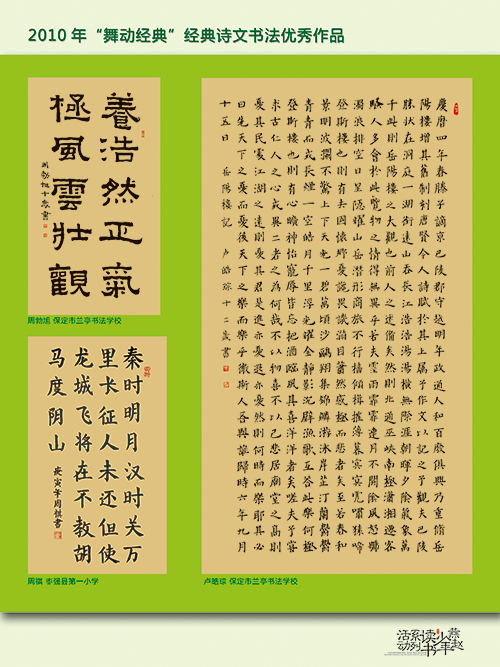 2010 年“舞动经典”经典诗文书法优秀作品
養浩然正氣
極風雲壯觀
周勃旭十歲書
周勃旭 保定市兰亭书法学校
秦时明月汉时关万
里长征人未还但使
龙城飞将在不教胡
马度阴山
庚寅年周祺書
周祺 枣强县第一小学
慶曆四年春滕子諒京巴陵郡守越明年政通人和百廢俱興乃重脩岳
陽樓增其舊制刻唐賢今人詩賦於其上屬予作文以記之予觀夫巴陵
勝狀在洞庭一湖銜遠山吞長江浩浩湯湯橫無際涯朝暉夕陰氣象萬
千此則岳陽樓之大觀也前人之述備矣然則北通巫峽南極瀟湘遷客
騷人多會於此覽物之情得無異乎若夫霪雨霏霏連月不開陰風怒號
濁浪排空日星隱耀山岳潛形商旅不行檣傾楫摧薄暮冥冥虎嘯猿啼
登斯樓也則有去國懷鄉憂讒畏譏滿目蕭然感極而悲者矣至若春和
景明波瀾不驚上下天光一碧萬頃沙鷗翔集錦鱗游泳岸芷汀蘭鬱鬱
青青而或長煙一空皓月千里浮光耀金靜影沉璧漁歌互答此樂何極
登斯樓也則有心曠神怡寵辱皆忘把酒臨風其喜洋洋者矣嗟夫予嘗
求古仁人之心或異二者之為何哉不以物喜不以己悲居廟堂之高則
憂其民處江湖之遠則憂其君是進亦憂退亦憂然則何時而樂耶其必
曰先天下之憂而憂後天下之樂而樂乎微斯人吾與誰歸時六年九月
十五日 岳陽樓記 卢皓琮十二歲書
卢皓琮 保定市兰亭书法学校
燕赵
少年
读书
系列
活动